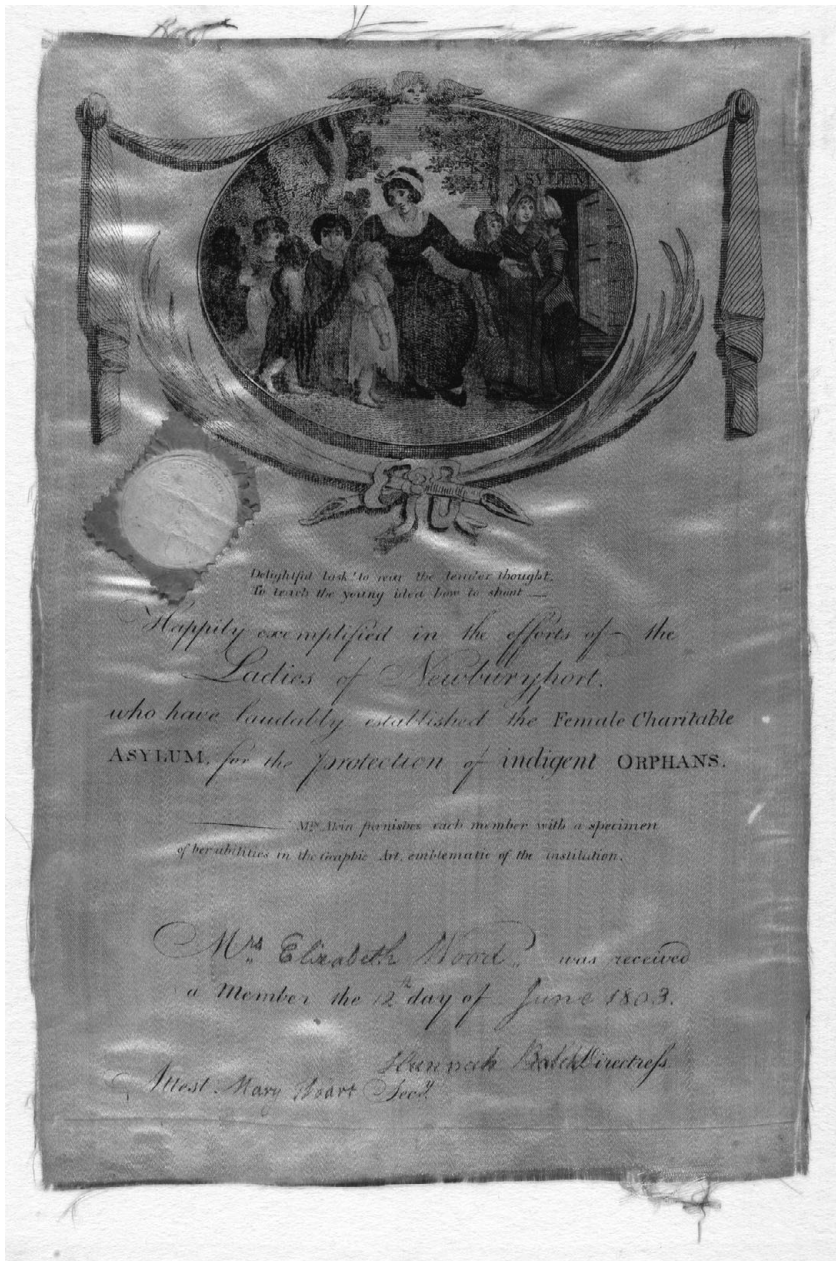 ASYLUM
Delightful task! to rear the tender thought,
To teach the young idea how to shoot —
Happily exemplified in the efforts of the
Ladies of Newburyport,
who have laudably established the Female Charitable
ASYLUM, for the protection of indigent ORPHANS.
furnishes each member with a specimen
of her abilities in the Graphic Art, emblematic of the institution.
Mrs Elizabeth Wood, was received
a Member the 12th day of June 1803.
Hannah Directress
Attest. Mary Secy